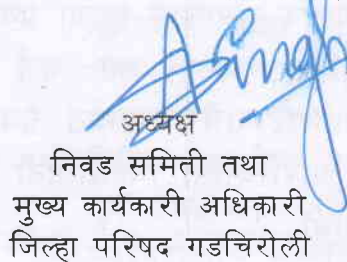 ASingh
अध्यक्ष
निवड समिती तथा
मुख्य कार्यकारी अधिकारी
जिल्हा परिषद गडचिरोली